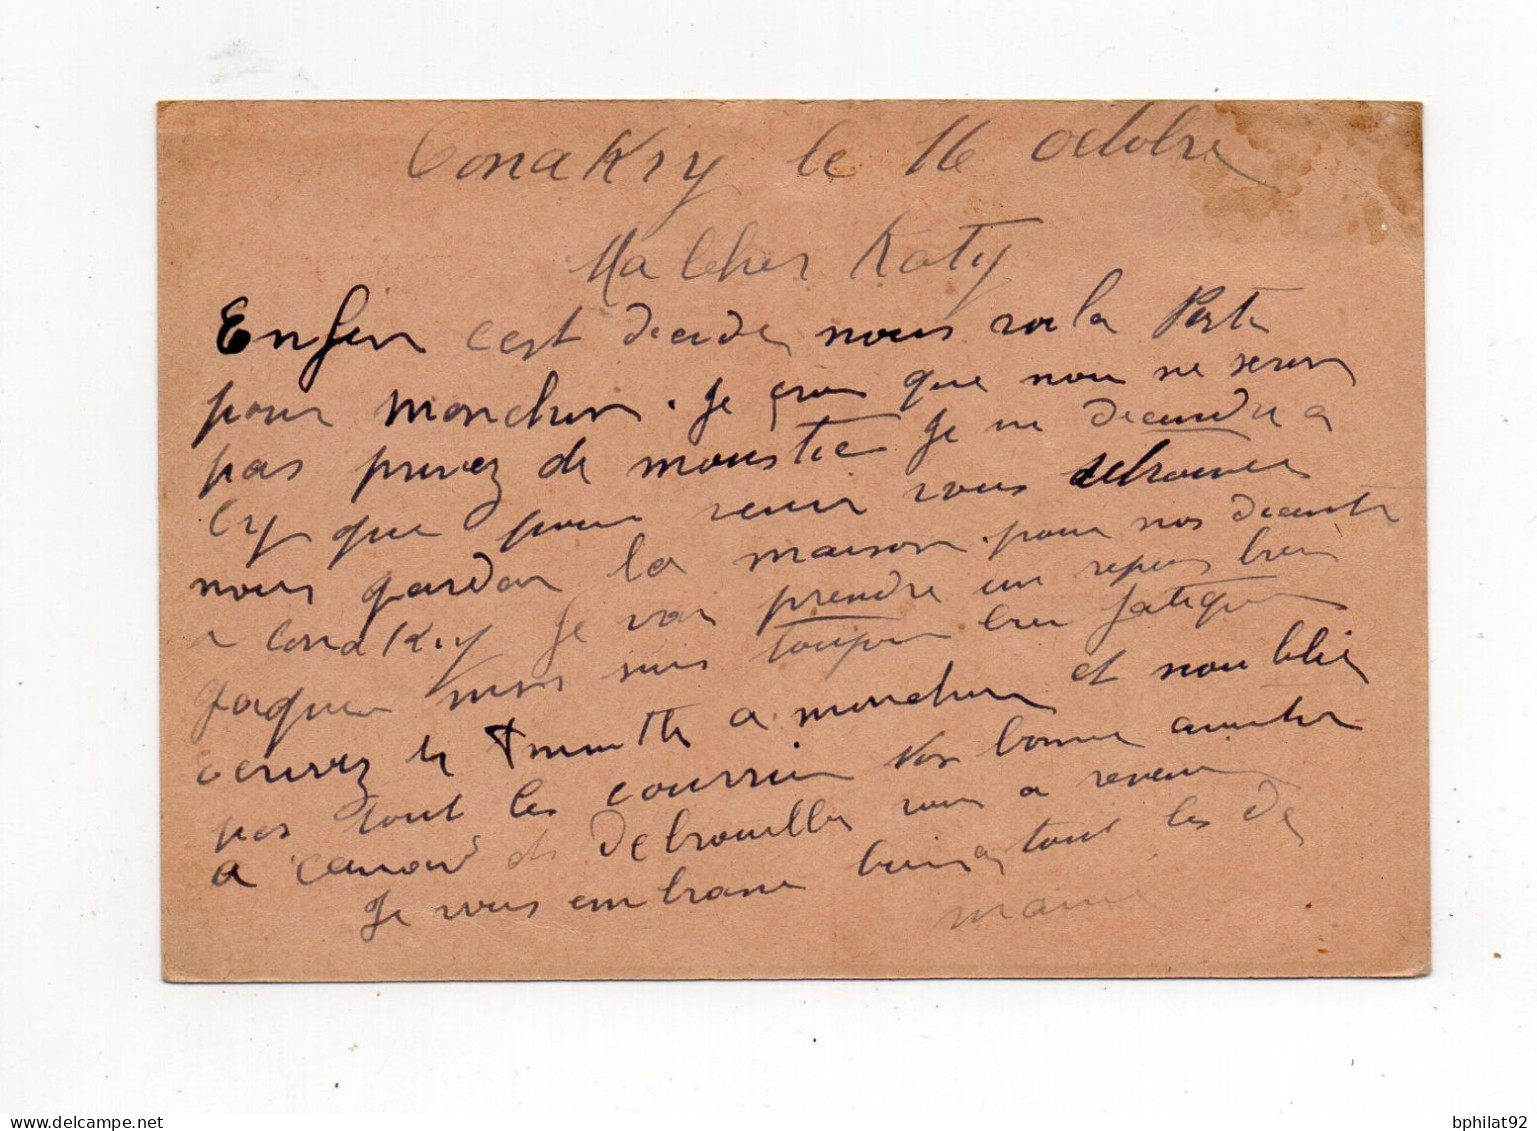 Conakry le 16 octobre
Ma cher Katy
Enfin cest decider nous voila Partie
pour monchon. Je croi que nou ne seron
pas privez de moustic Je ne decendre a
Cy que pour venir vous retrouver
nous gardon la maison pour nos decente
a Conakry Je vai prendre un repos bien
Jaques mois suis toujour bien fatiguer
Ecrivez le a monchon et noublie
pas tout les courrier Vos bonne
a et debrouille vous a revenir
Je vous embrasse bien tout les de
maria
bphilat92